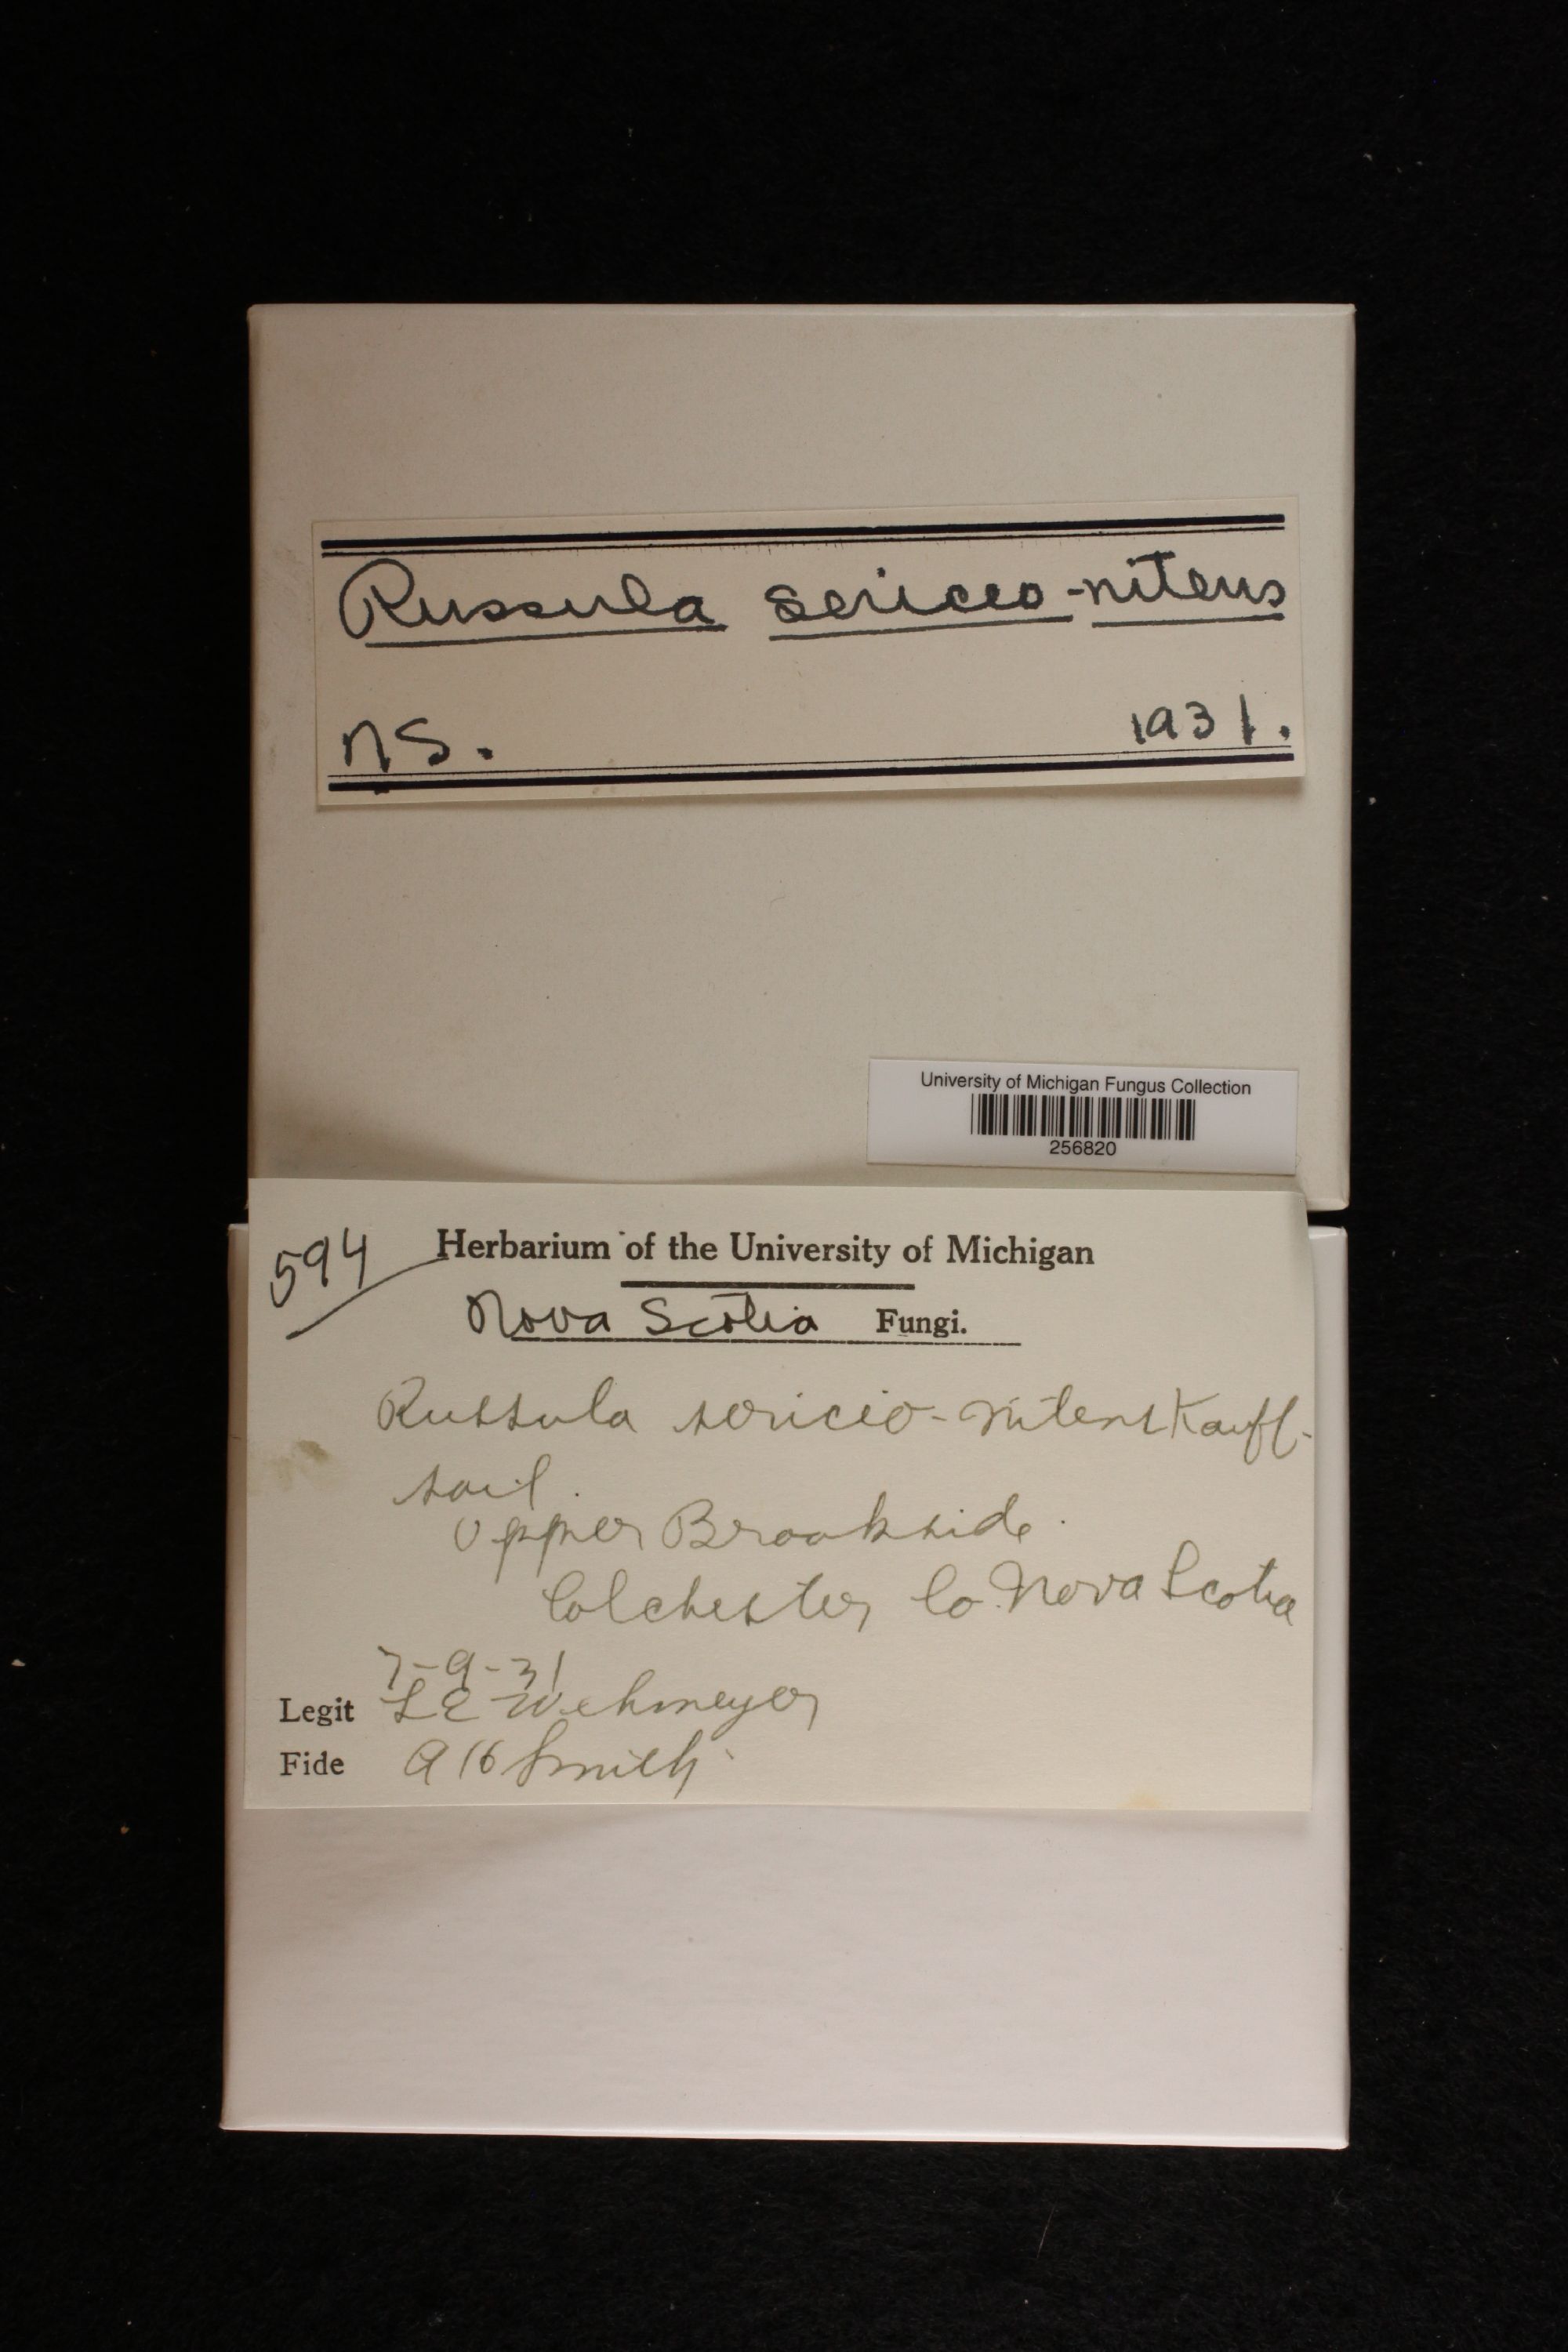 Russula sericeo-nitens
NS. 1931.
University of Michigan Fungus Collection
256820
594
Herbarium of the University of Michigan
Nova Scotia Fungi.
Russula sericeo-nitens Kauff-
soil.
Upper Brookside.
Colchester Co. Nova Scotia
7-9-31
Legit L E Wehmeyer
Fide A H Smith